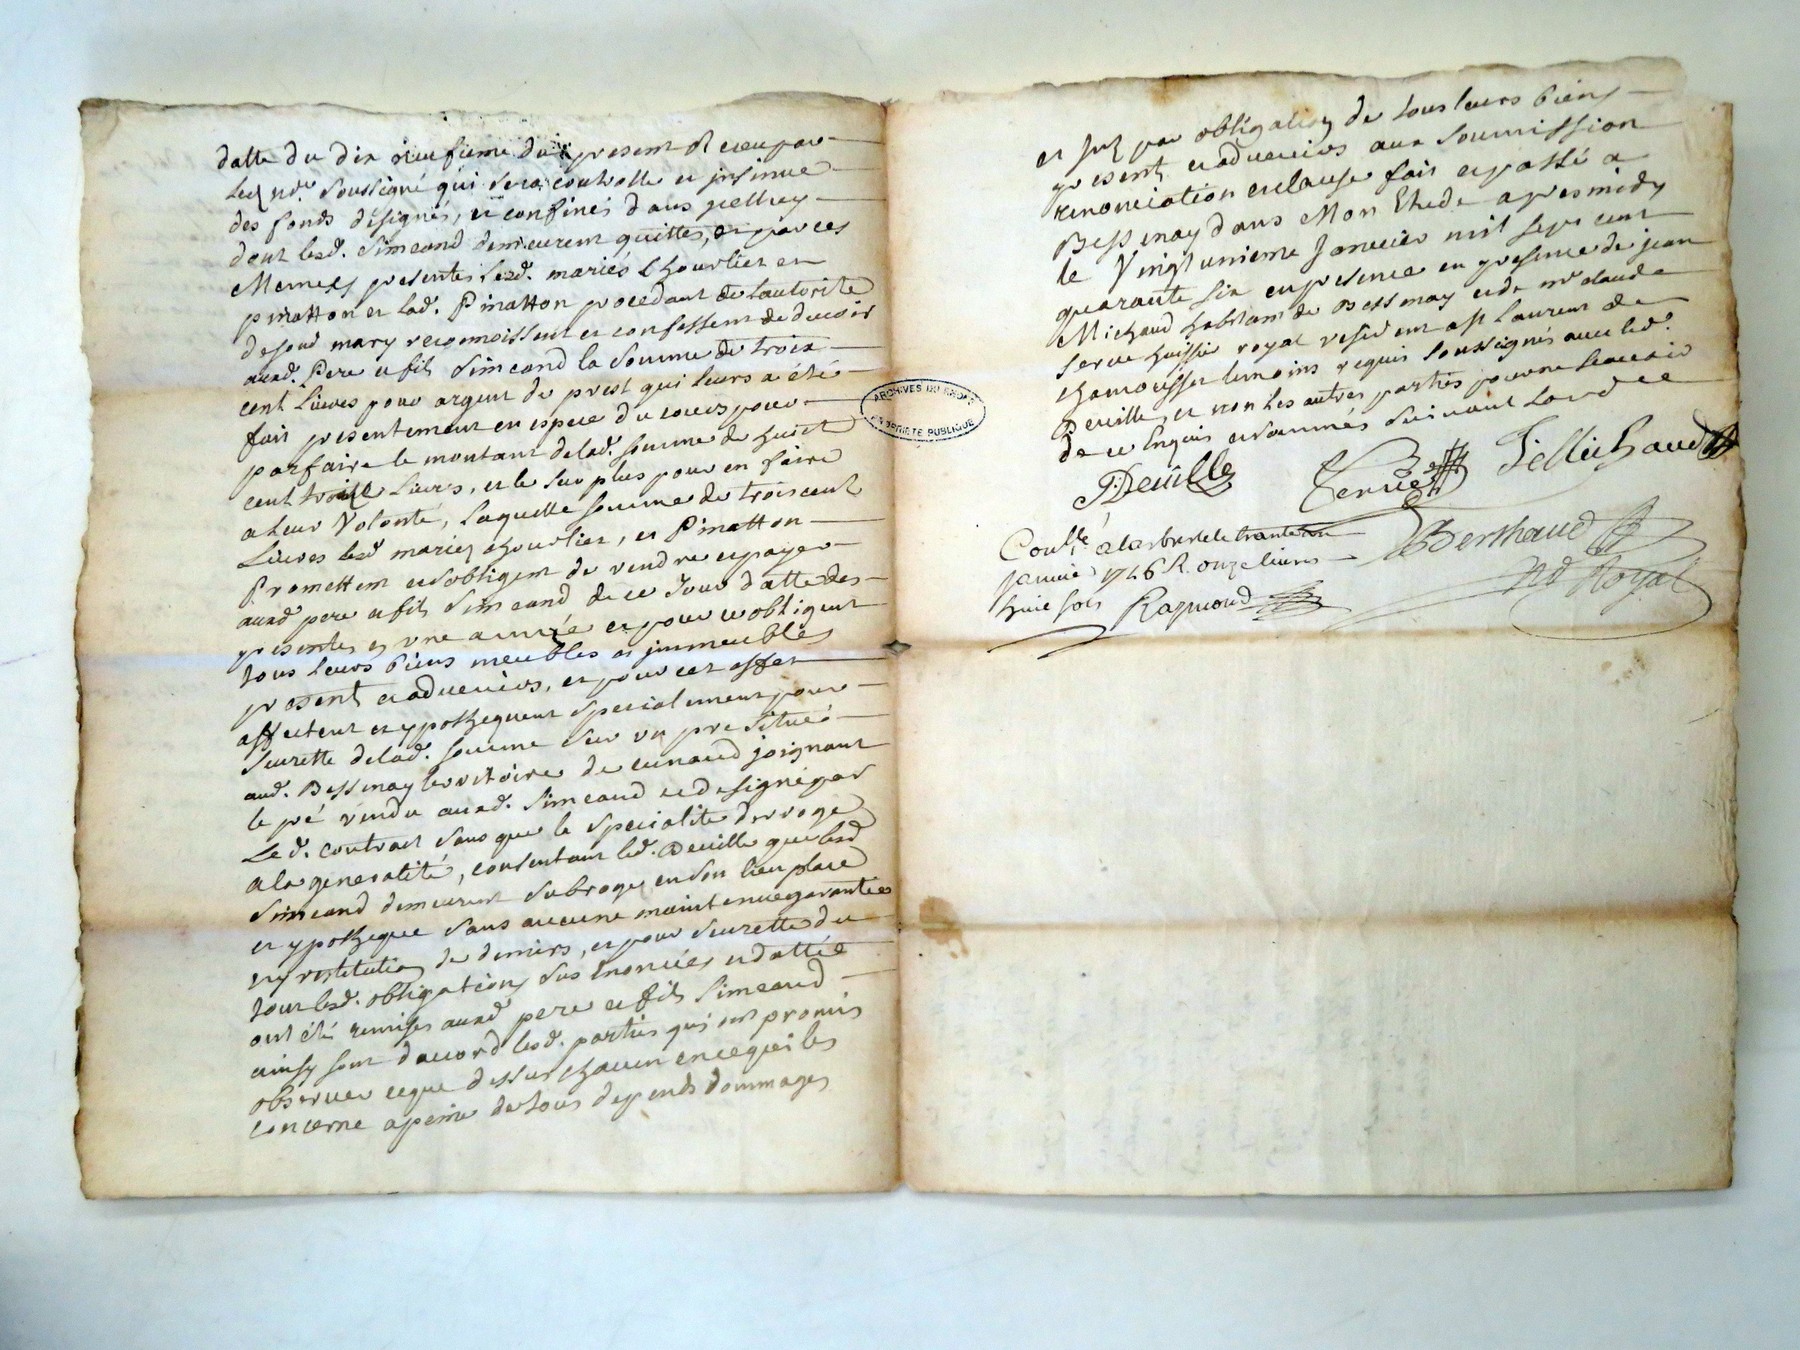 datte du dix neufieme du present Receu par
led. nore. soussigné qui sera controllé et insinué
des fonds désignés, et confinés dans icelluy
dont lesd. Simeand demeurent quittes, et par ces
Memes presentes lesd. mariés Chourlier et
pinatton et lad. Pinatton procedant de l'autorité
de sond mary reconnoissent et confessent de devoir
auxd. Pere et fils Simeand la somme de trois
cent Livres pour argent de prest qui leurs a été
fait presentement en espece du cours pour
parfaire le montant de lad. somme de huict
cent Livres, et le surplus pour en faire
a Leur Volonté, Laquelle somme de trois cent
Livres lesd mariez chourlier, et Pinatton
Promettent et s'obligent de rendre et payer
auxd pere et fils Simeand de ce Jour datte des
presentes en une année et pour ce obligent
tous Leurs biens meubles et immeubles
present et advenirs, et pour cet effet
affectent et ypothequent specialement pour
seurette de lad. somme sur un pre situé
aud. Bessenay territoire de joignant
le pré vendu auxd. Simeand et designé par
Led. contract sans que la specialité derroge
a la generalité, consentant led. Deville que lesd
Simeand demeurent subrogez en son lieu place
et ypotheque sans aucune maintenue garantie
ny restitution de deniers, et pour seurette du
tout lesd. obligations sus énoncées et dattée
ont été remises auxd pere et fils Simeand
ainsy sont d'accord lesd. parties qui ont promis
observer ce que dessus chacun en ce qui les
concerne a peine de tous depends dommages
et par obligation de tous leurs biens
present et advenirs aux soumission
renonciation et clause fait et passé a
Bessenay dans Mon Etude apres midy
le Vingt unieme Janvier mil sept cent
quarante six en presence en presence de jean
Michaud habitant de Bessenay et de mr claude
huissier royal resident a st Laurent de
chamousset temoins requis soussignés avec led.
Deville, et non les autres parties pour ne scavoir
de ce Enquis et sommés suivant Lord ce
Deville
J Michaud
ARCHIVES DU RHÔNE
PROPRIÉTÉ PUBLIQUE
Berthaud
Nore Royal
Conllé a larbresle le trante un
janvier 1746 R. onze livres
huit sols Raymond